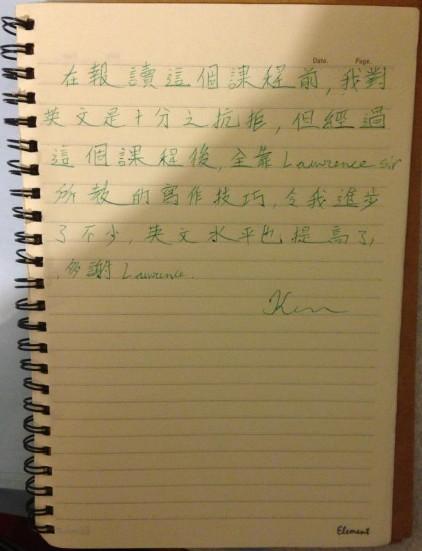 Date. Page.
在報讀這個課程前,我對
英文是十分之抗拒,但經過
這個課程後,全靠Lawrence sir
所教的寫作技巧,令我進步
了不少,英文水平也提高了,
多謝Lawrence.
Ken
Element